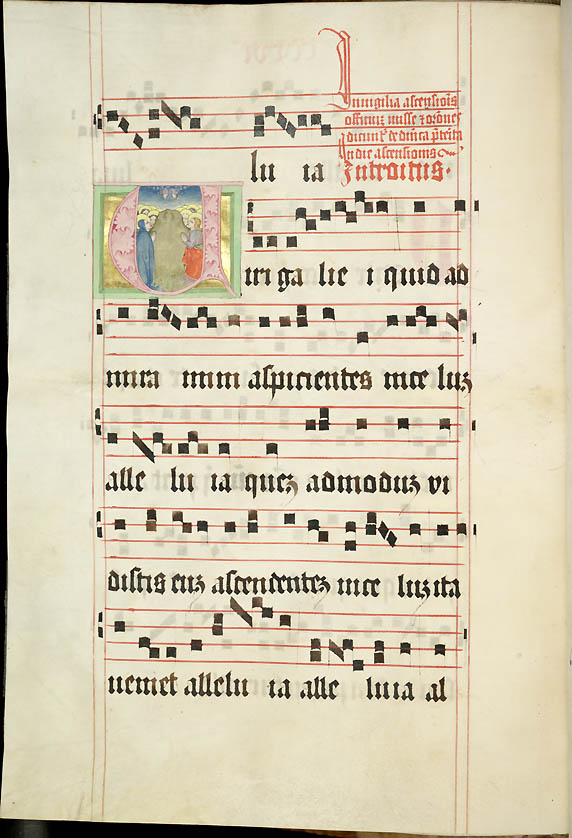 In vigilia ascensiois
officiuz misse ⁊ orones
dicunt' de dnica pterita
In die ascensionis
lu ia Introitus.
Uiri ga lie i quid ad
mira mini aspicientes in ce luz
alle lu ia quez admoduz vi
distis euz ascendentez in ce luz ita
veniet allelu ia alle luia al